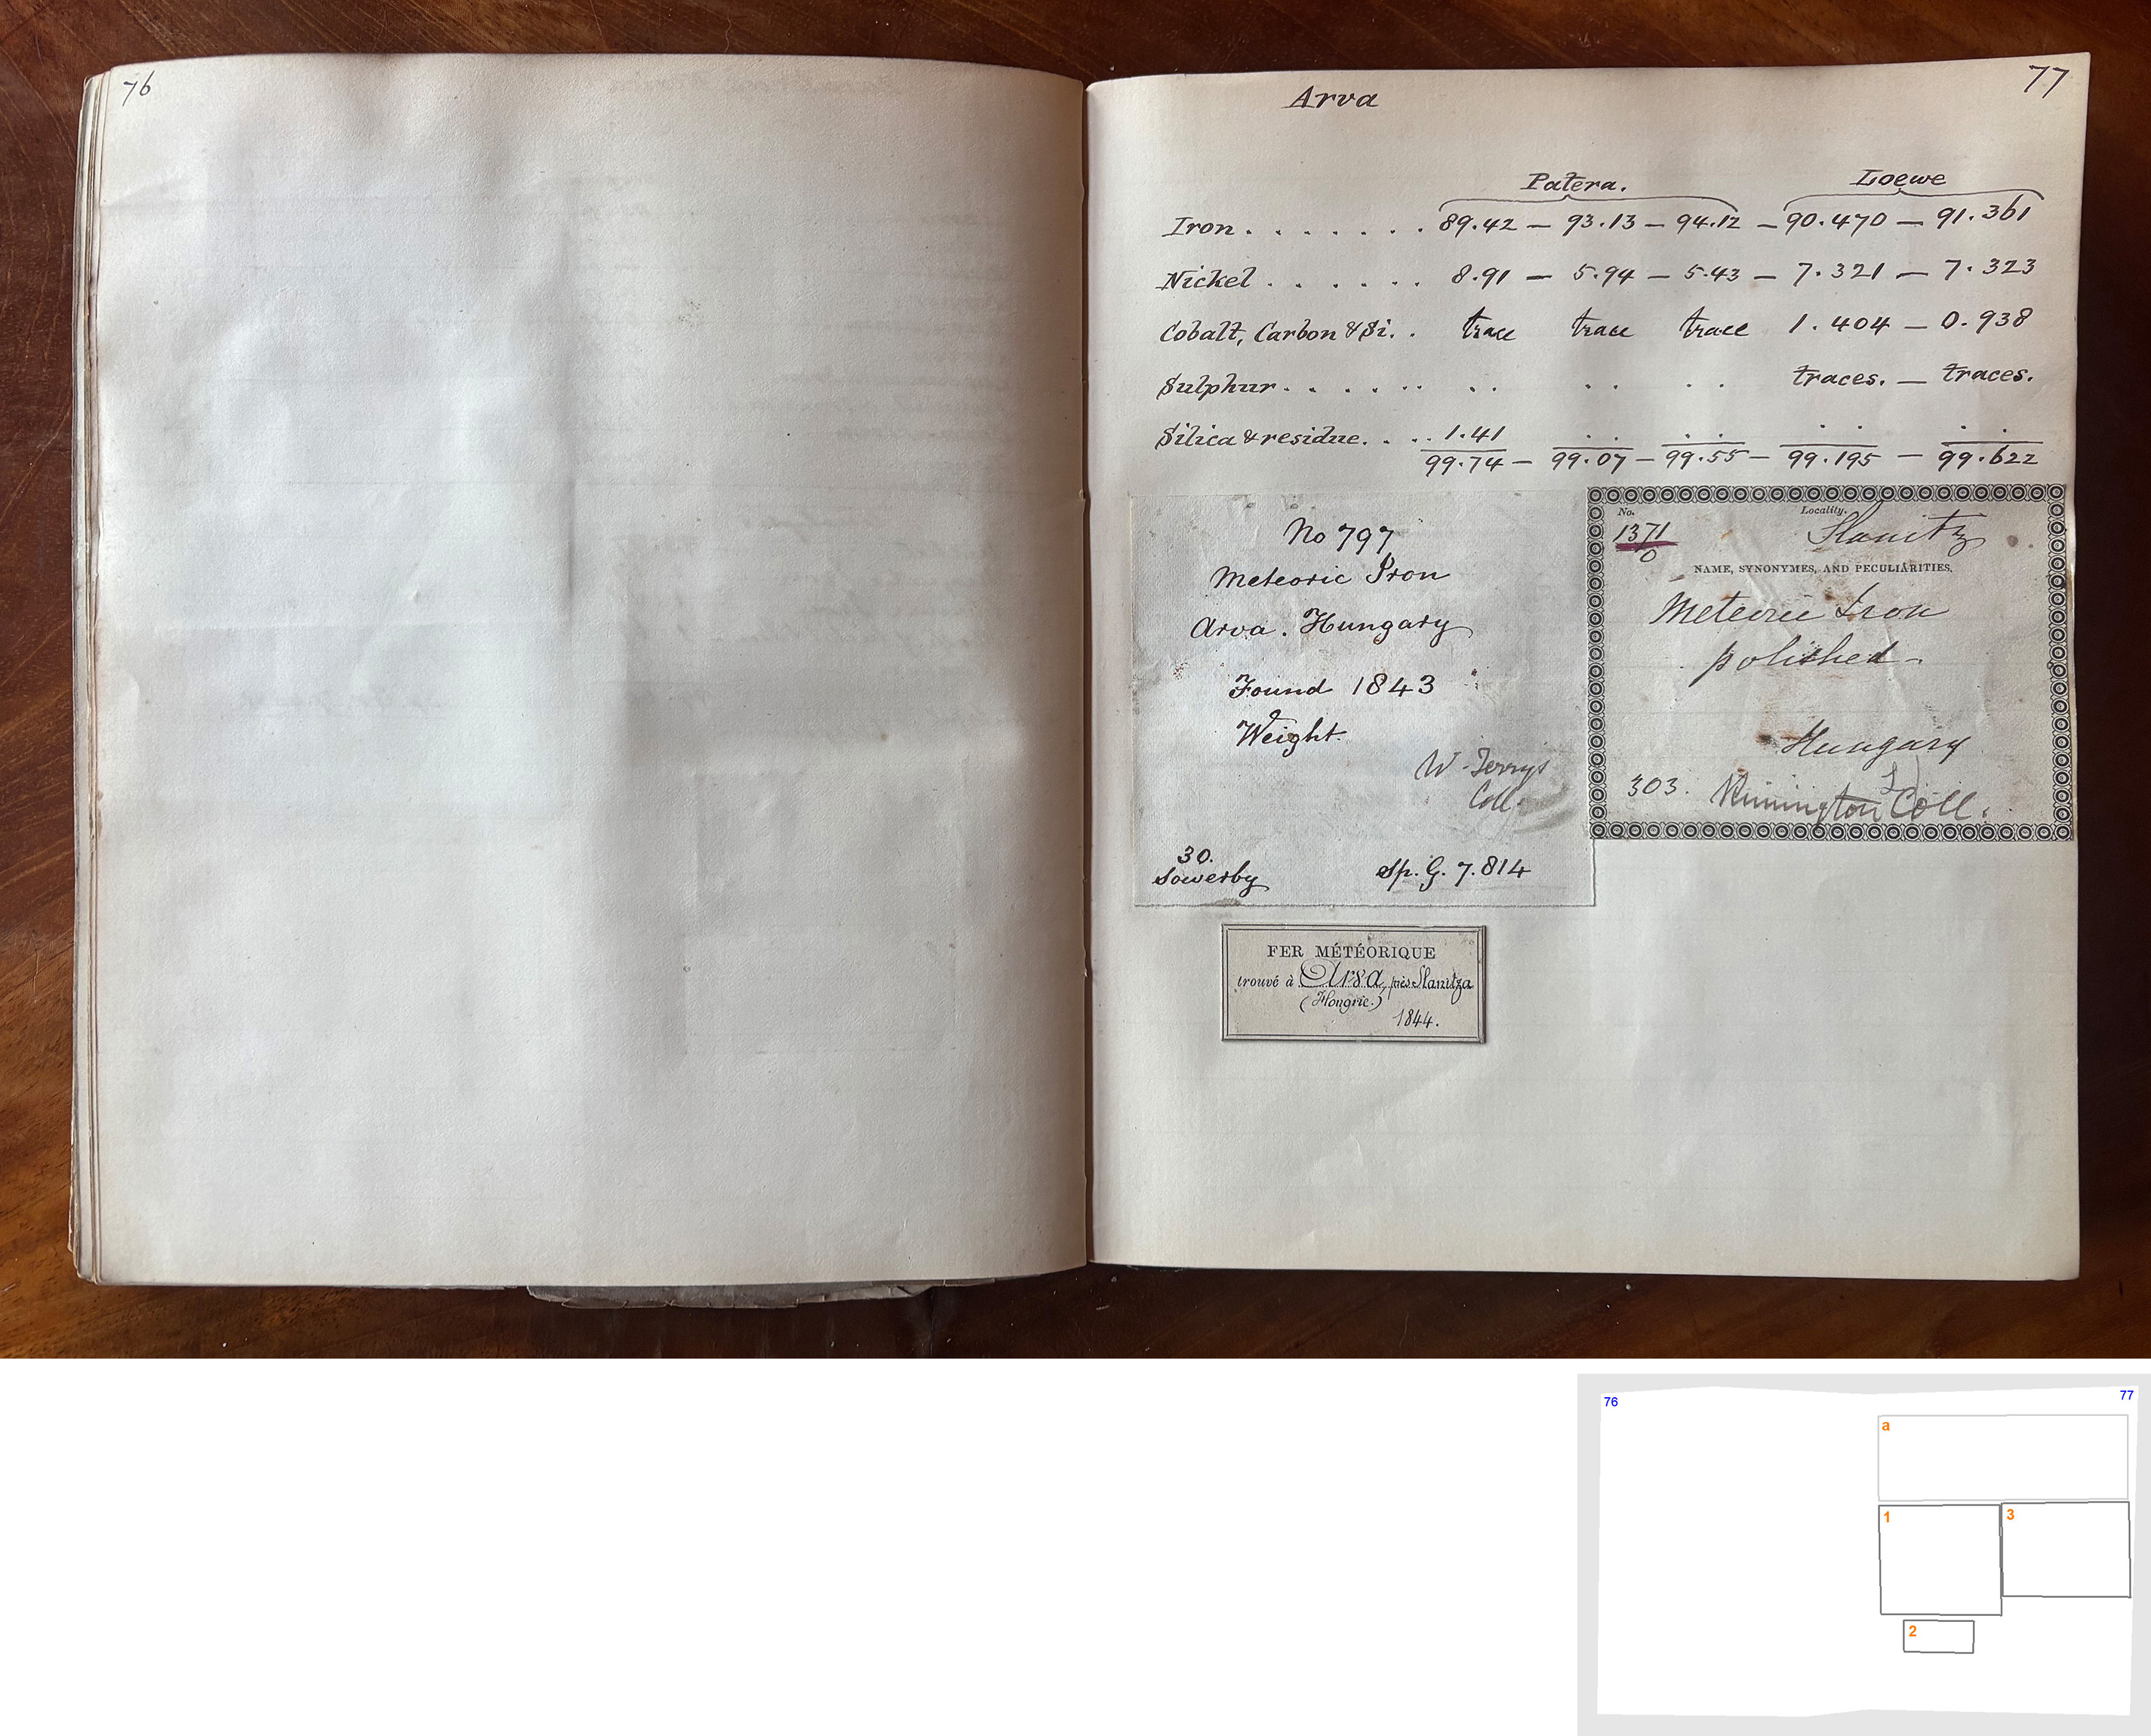 76
77
Arva
Patera. Loewe
Iron . . . . . . . 89.42 — 93.13 — 94.12 — 90.470 — 91.361
Nickel . . . . . . 8.91 — 5.94 — 5.43 — 7.321 — 7.323
Cobalt, Carbon & Si. . trace trace trace 1.404 — 0.938
Sulphur . . . . . . . . . . . . traces. — traces.
Silica & residue. . . . . 1.41 . . . . . . . .
99.74 — 99.07 — 99.55 — 99.195 — 99.622
No 797
Meteoric Iron
Arva. Hungary
Found 1843
Weight.
W. Terrys
Coll.
30.
Sowerby Sp. G. 7.814
No. Locality.
1371 Slanitz
0
NAME, SYNONYMES, AND PECULIARITIES.
Meteoric Iron
polished -
Hungary
303. Rimington Coll.
FER MÉTÉORIQUE
trouvé à Arva, près Slanitza
(Hongrie.)
1844.
76
77
a
1
3
2